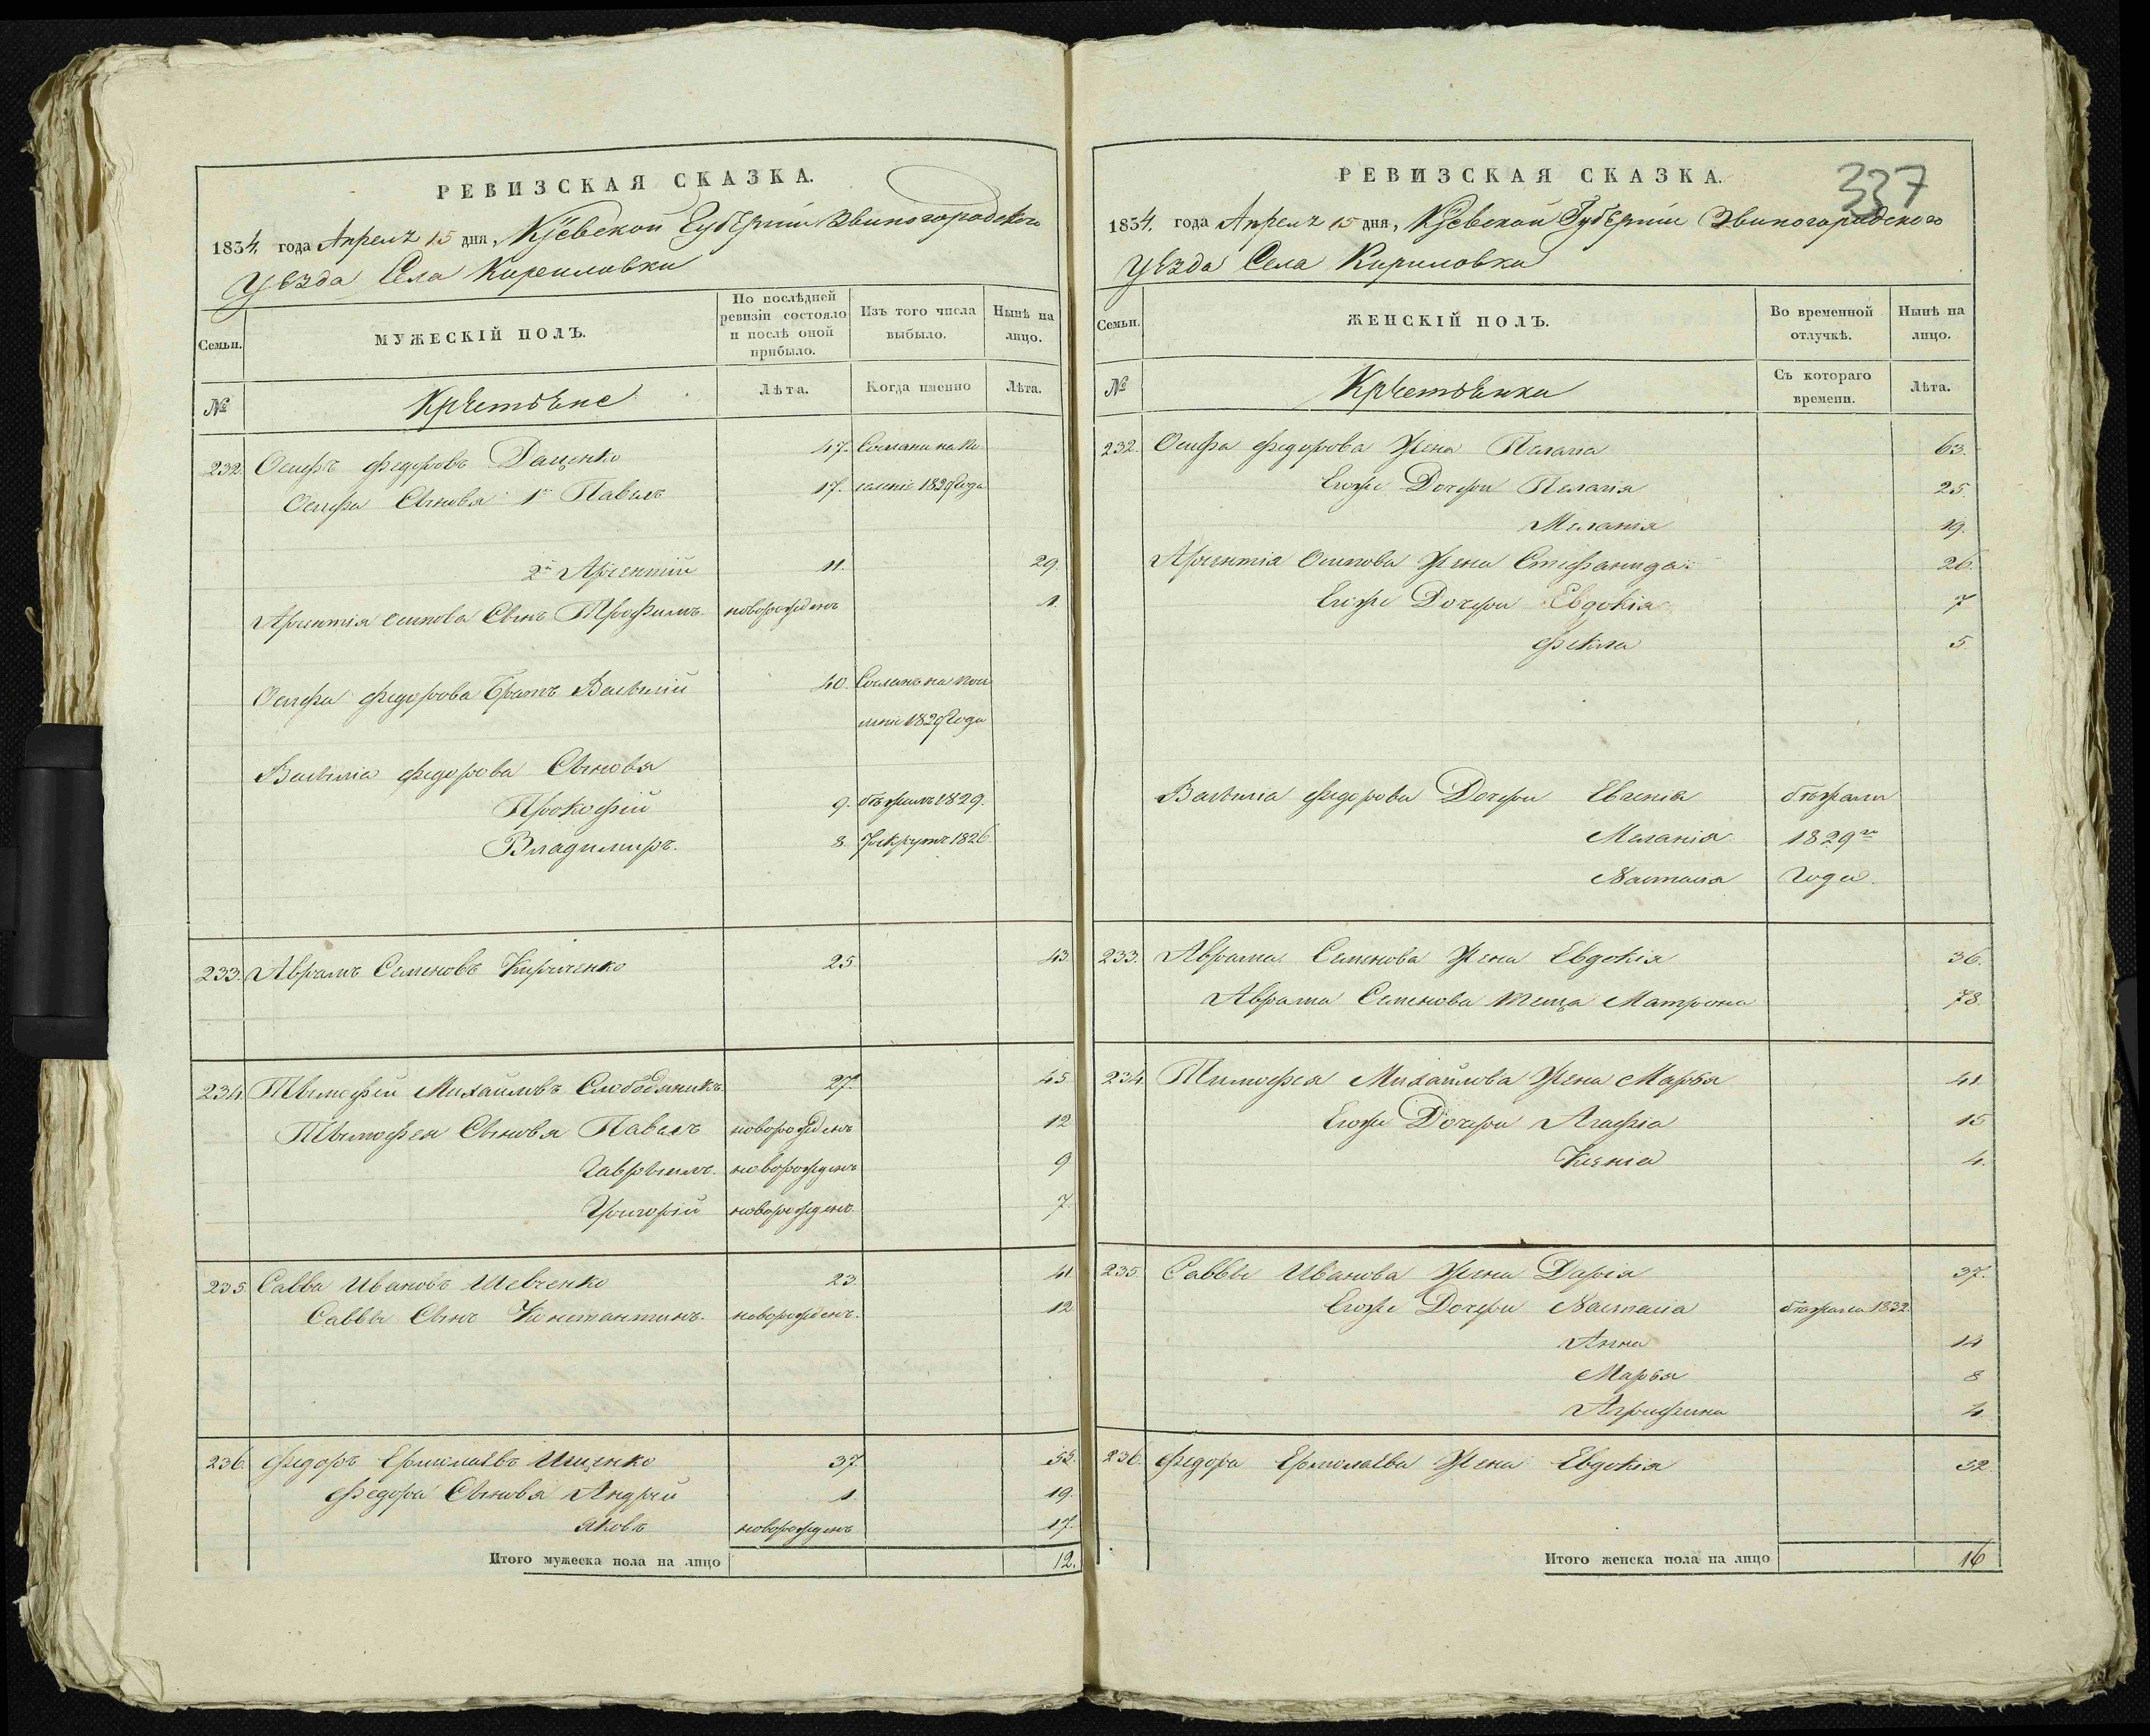 РЕВИЗСКАЯ СКАЗКА.
1834. года Апреля 15 дня, Кіевской Губерніи Звиногородского
Уезда Села Кириловки
Семьи.
МУЖЕСКІЙ ПОЛЪ.
По послѣдней ревизіи состояло и послѣ оной прибыло.
Изъ того числа выбыло.
Нынѣ на лицо.
№
Крестьяне
Лѣта.
Когда именно
Лѣта.
232. Осифъ Федоровъ Даценко 47. Сосланы на по-
Осифа Сыновья 1й Павелъ 17. селеніе 1829 Года
2й Арсентій 11. 29.
Арсентія Осипова Сынъ Трофимъ новорожденъ 1.
Осифа Федорова Братъ Василій 40. Сосланъ на посе
леніе 1829 Года
Василія Федорова Сыновья
Прокофій 9. бѣжалъ 1829.
Владимиръ. 8. Рекрутъ 1826.
233. Аврамъ Семеновъ Кириченко 25 43
234. Тимофей Михайловъ Слободяникъ 27. 45
Тимофея Сыновья Павелъ новорожденъ 12
Гаврыилъ. новорожденъ 9
Григорій новорожденъ. 7.
235. Савва Ивановъ Шевченко 23. 41
Саввы Сынъ Константинъ. новорожденъ. 12
236. Федоръ Ермолаевъ Ищенко 37. 55.
Федора Сыновья Андрей 1. 19.
Яковъ новорожденъ 17.
Итого мужеска пола на лицо 12.
337
РЕВИЗСКАЯ СКАЗКА.
1834. года Апреля 15 дня, Кіевской Губерніи Звиногородского
Уезда Села Кириловки
Семьи.
ЖЕНСКІЙ ПОЛЪ.
Во временной отлучкѣ.
Нынѣ на лицо.
№
Крестьянки
Съ котораго времени.
Лѣта.
232. Осифа Федорова Жена Пелагія 63.
Егоже Дочери Пелагія 25.
Меланія 19.
Арсентія Осипова Жена Стефанида. 26.
Егоже Дочери Евдокія 7
Фекла 5
Василія Федорова Дочери Евгенія бѣжали
Меланія. 1829го
Настасія Года.
233. Аврама Семенова Жена Евдокія 36.
Аврама Семенова Теща Матрона 78.
234. Тимофея Михайлова Жена Марья 41.
Егоже Дочери Агафія 15
Ксенія 4.
235. Саввы Иванова Жена Дарія 37.
Егоже Дочери Настасія бѣжала 1832.
Анна 14
Марья 8
Агрифина 4
236. Федора Ермолаева Жена Евдокія 52.
Итого женска пола на лицо 16